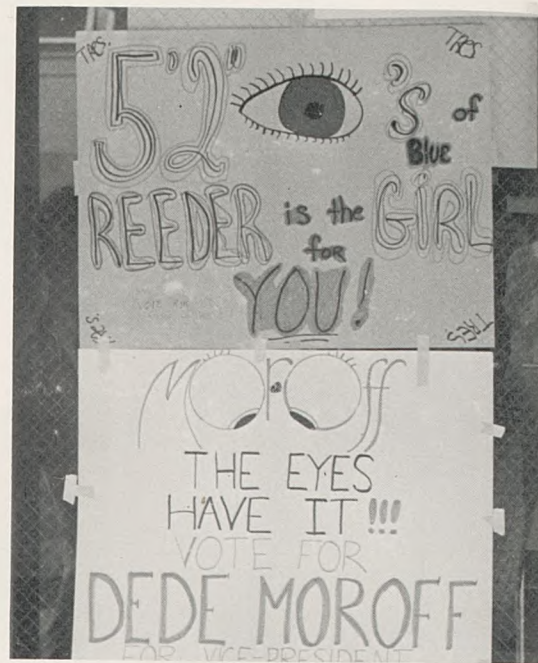 TRES. TRES
5'2" 's of
Blue
REEDER is the GiRL
for
YOU!
TRES.
Moroff
THE EYES
HAVE IT!!!
VOTE FOR
DEDE MOROFF
FOR VICE-PRESIDENT